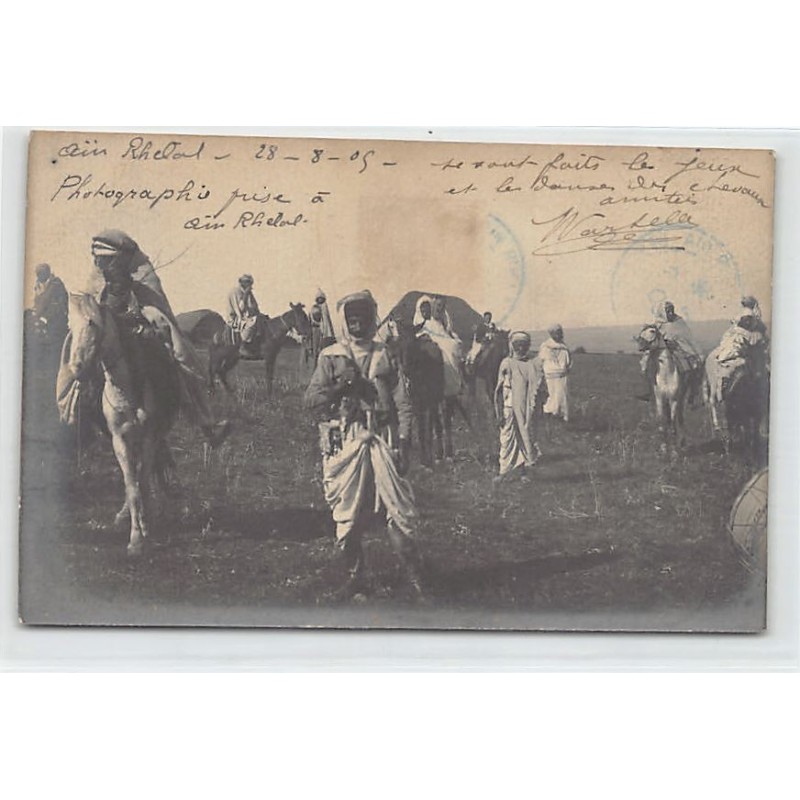 Aïn Rhelal - 28 - 8 - 05 -
Photographie prise à
Aïn Rhelal -
se vont faits le jeux
et les danses des chevaux
amitiés